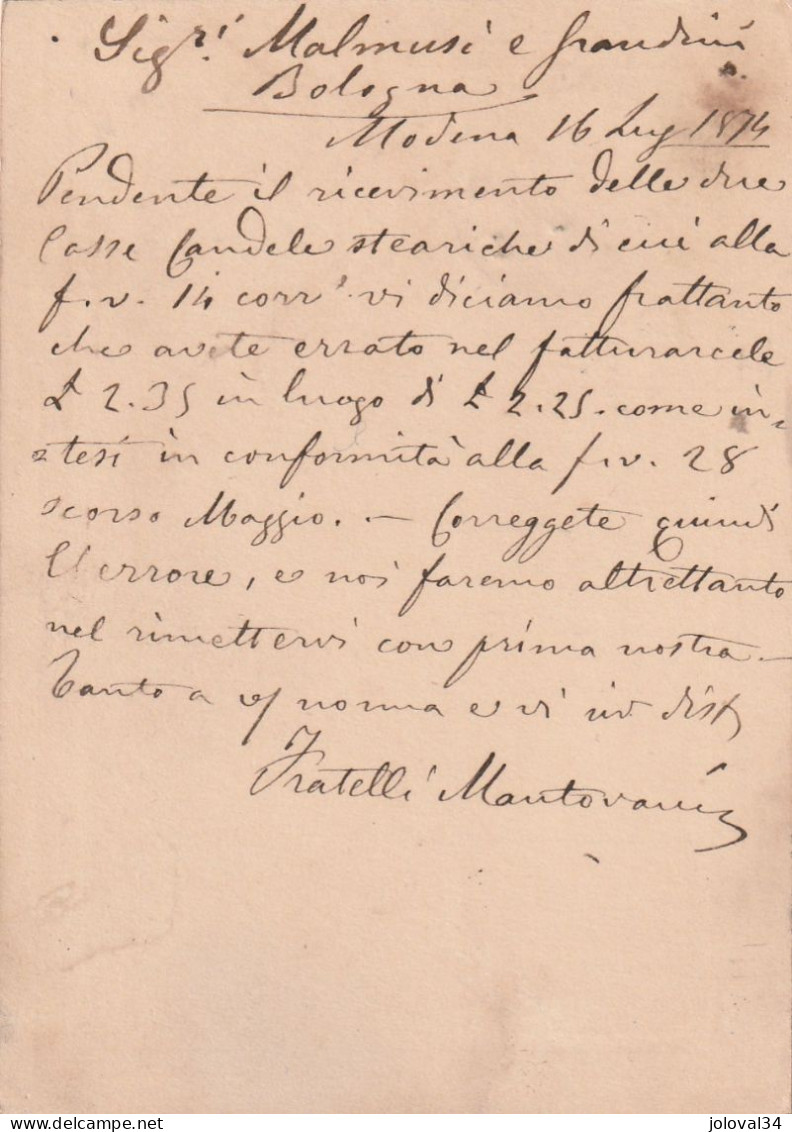 Sigri. Malmusi e Grandini
Bologna
Modena 16 Lug 1874
Pendente il ricevimento delle due
Casse Candele steariche di cui alla
f.v. 14 corr. vi diciamo frattanto
che avete errato nel fatturarcele
£ 2.35 in luogo di £ 2.25. come in-
tesi in conformità alla f.v. 28
scorso Maggio. — Correggete quindi
l'errore, e noi faremo altrettanto
nel rimettervi con prima nostra. —
Tanto a v/ norma e vi dist
Fratelli Mantovani
Delcampe.net
joloval34